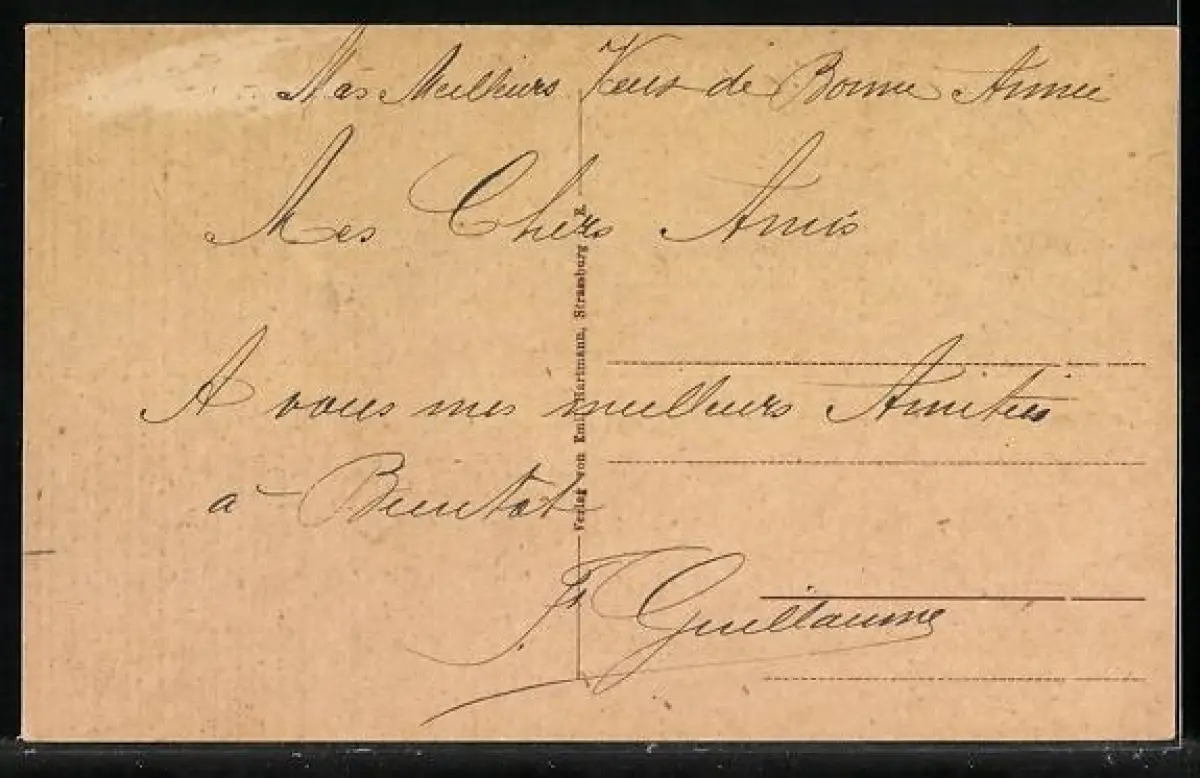 Mes Meilleurs Veux de Bonne Année
Mes Chers Amis
A vous mes meilleurs Amitiés
à Bientot
Guillaume
Verlag von Emil Hartmann, Strassburg E.